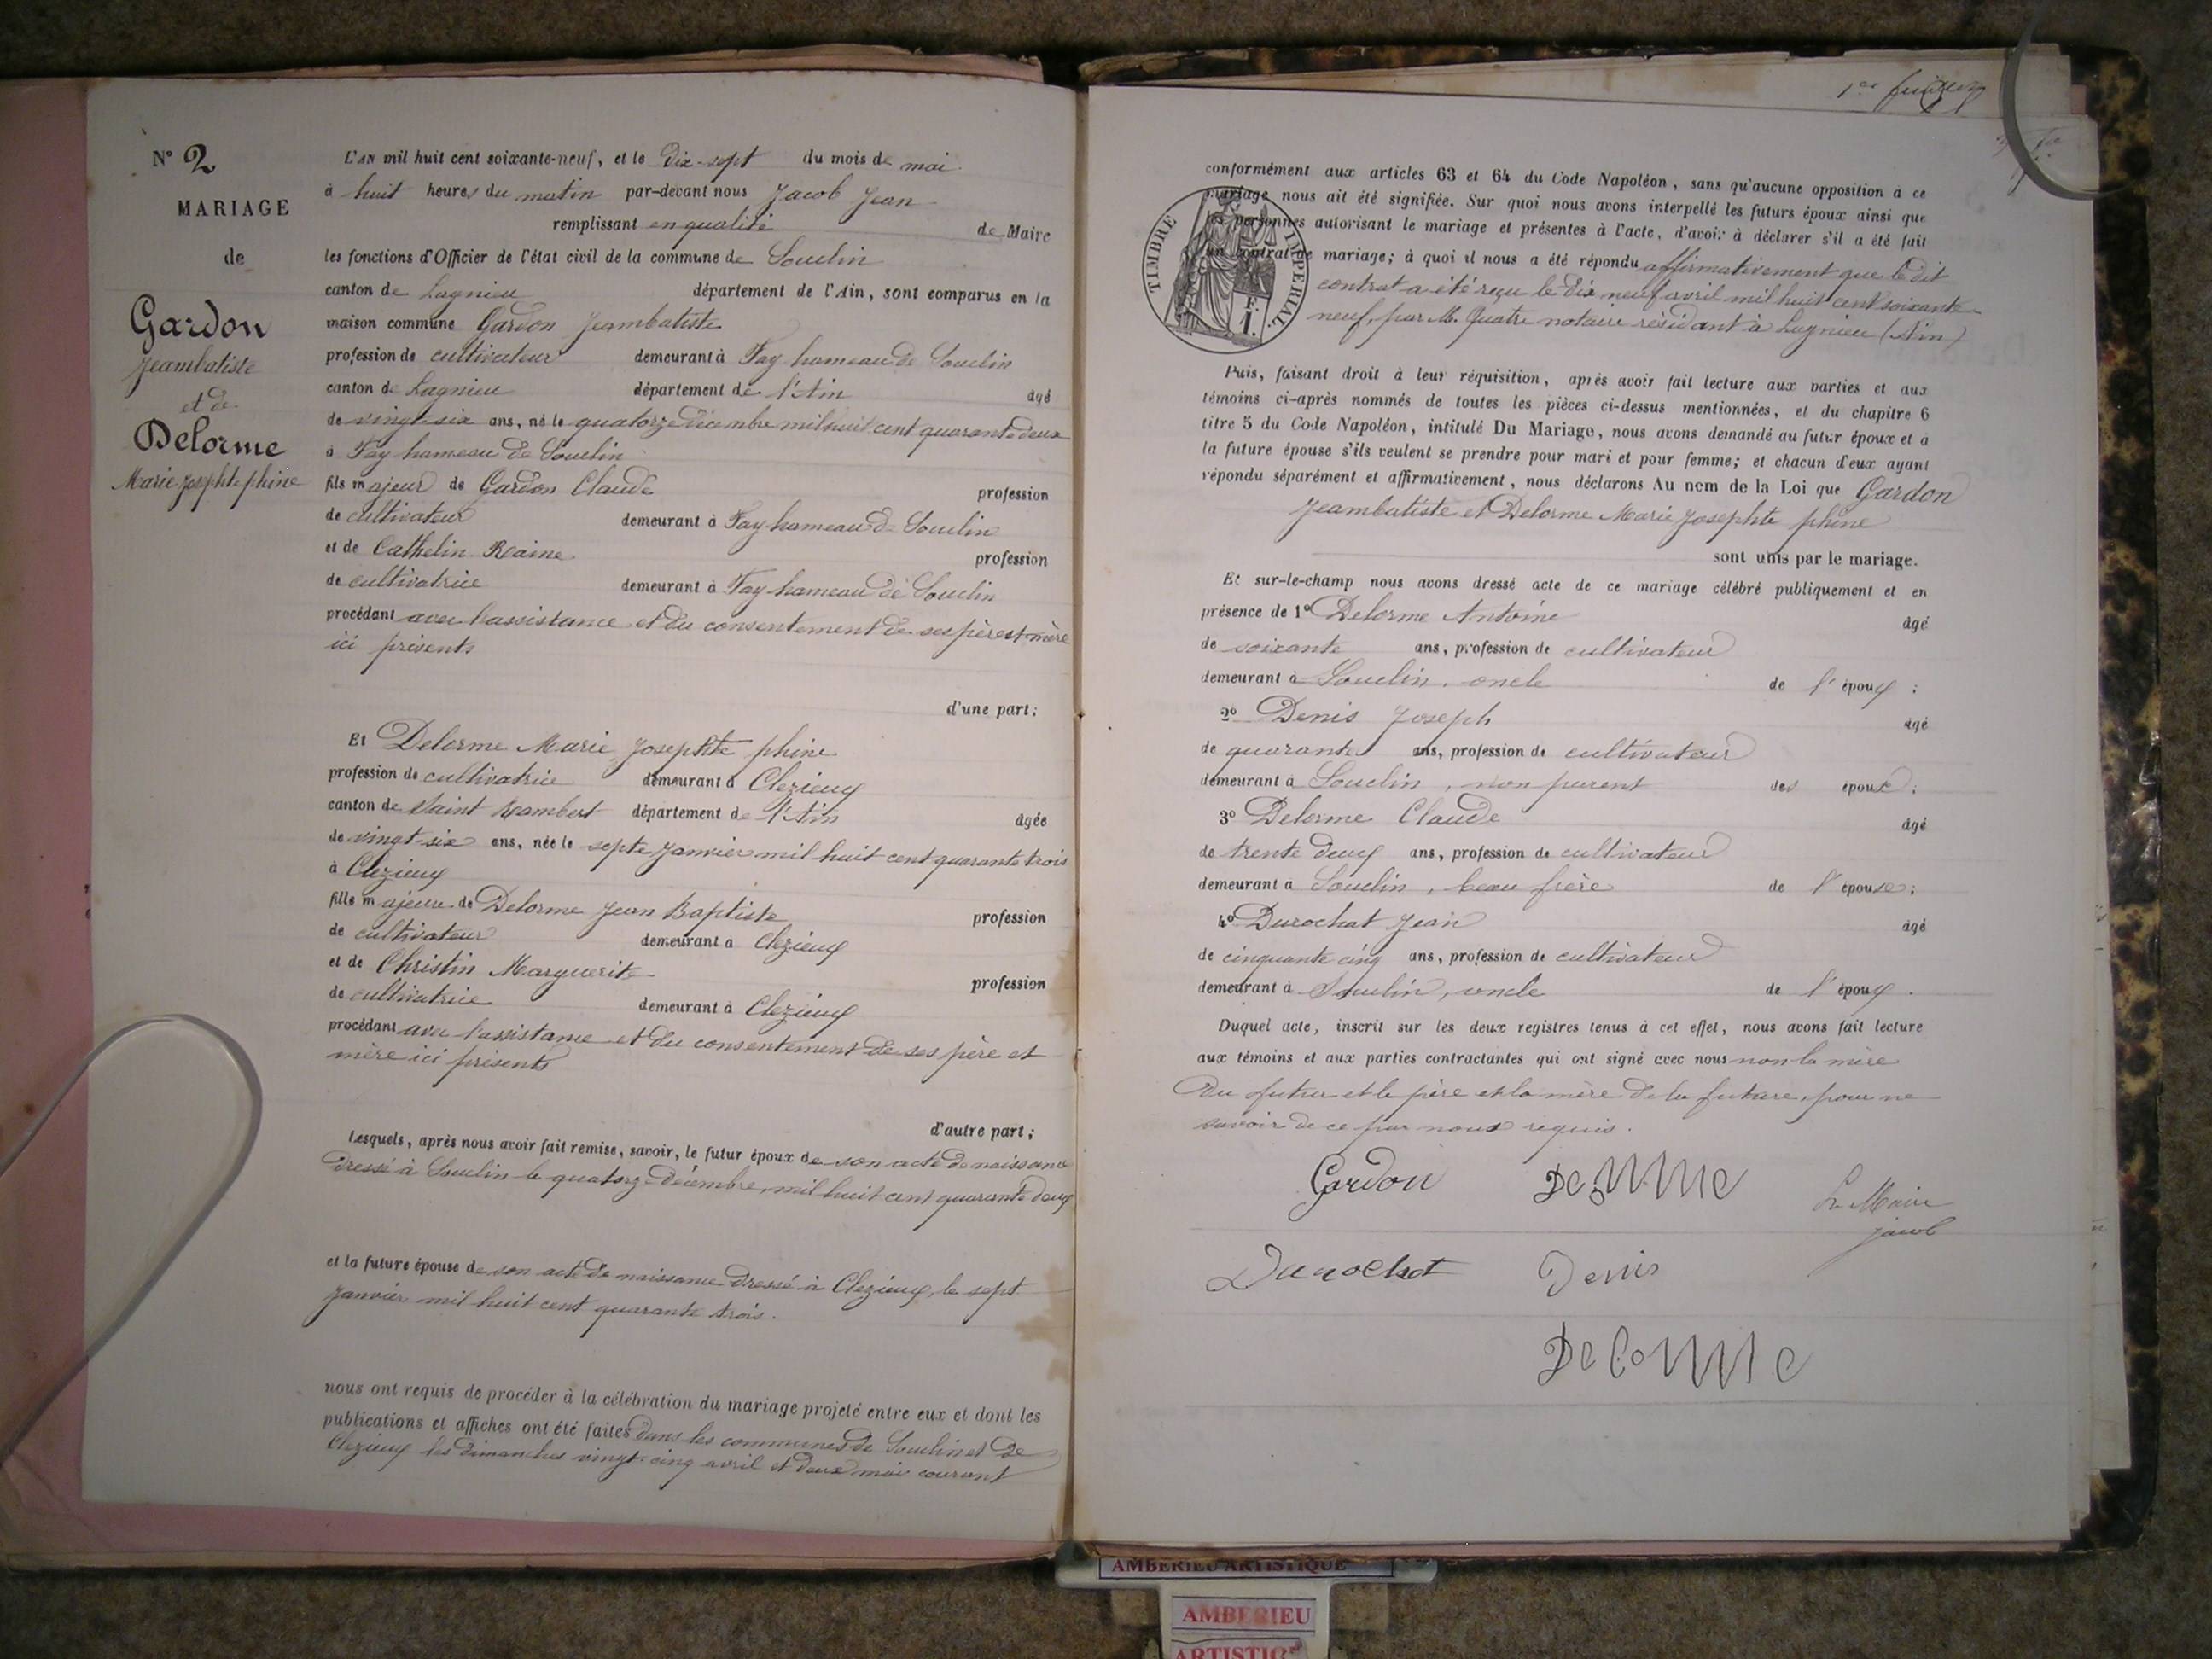 N° 2
MARIAGE
de
Gardon
Jeambatiste
et de
Delorme
Marie Josephte phine
L'AN mil huit cent soixante-neuf, et le Dix-sept du mois de mai
à huit heures du matin par-devant nous Jacob Jean
remplissant en qualité de Maire
les fonctions d'Officier de l'état civil de la commune de Souclin
canton de Lagnieu département de l'Ain, sont comparus en la
maison commune Gardon Jeambatiste
profession de cultivateur demeurant à Fay hameau de Souclin
canton de Lagnieu département de l'Ain âgé
de vingt-six ans, né le quatorze Décembre mil huit cent quarante deux
à Fay hameau de Souclin
fils majeur de Gardon Claude profession
de cultivateur demeurant à Fay hameau de Souclin
et de Cathelin Reaine profession
de cultivatrice demeurant à Fay hameau de Souclin
procédant avec l'assistance et du consentement de ses père et mère
ici présents
d'une part;
Et Delorme Marie Josephte phine
profession de cultivatrice demeurant à Clezieuy
canton de Saint Rambert département de l'Ain âgée
de vingt-six ans, née le septe Janvier mil huit cent quarante trois
à Clezieuy
fille majeure de Delorme Jean Baptiste profession
de cultivateur demeurant à Clezieuy
et de Christin Marguerite profession
de cultivatrice demeurant à Clezieuy
procédant avec l'assistance et du consentement de ses père et
mère ici présents
d'autre part;
Lesquels, après nous avoir fait remise, savoir, le futur époux de son acte de naissance
Dressé à Souclin le quatorze Décembre mil huit cent quarante deux
et la future épouse de son acte de naissance Dressé à Clezieuy, le sept
Janvier mil huit cent quarante trois.
nous ont requis de procéder à la célébration du mariage projeté entre eux et dont les
publications et affiches ont été faites dans les communes de Souclin et de
Clezieuy les Dimanches vingt-cinq avril et deux mai courant
1er
conformément aux articles 63 et 64 du Code Napoléon, sans qu'aucune opposition à ce
mariage nous ait été signifiée. Sur quoi nous avons interpellé les futurs époux ainsi que
les personnes autorisant le mariage et présentes à l'acte, d'avoir à déclarer s'il a été fait
un contrat de mariage; à quoi il nous a été répondu affirmativement que le dit
contrat a été reçu le Dix neuf avril mil huit cent soixante-
neuf, par M. Quatre notaire résidant à Lagnieu (Ain)
TIMBRE IMPÉRIAL.
F.
1.
Puis, faisant droit à leur réquisition, après avoir fait lecture aux parties et aux
témoins ci-après nommés de toutes les pièces ci-dessus mentionnées, et du chapitre 6
titre 5 du Code Napoléon, intitulé Du Mariage, nous avons demandé au futur époux et à
la future épouse s'ils veulent se prendre pour mari et pour femme; et chacun d'eux ayant
répondu séparément et affirmativement, nous déclarons Au nom de la Loi que Gardon
Jeambatiste et Delorme Marie Josephte phine
sont unis par le mariage.
Et sur-le-champ nous avons dressé acte de ce mariage célébré publiquement et en
présence de 1° Delorme Antoine âgé
de soixante ans, profession de cultivateur
demeurant à Souclin, oncle de l'époux;
2° Denis Joseph âgé
de quarante ans, profession de cultivateur
demeurant à Souclin, non parent des époux;
3° Delorme Claude âgé
de trente deux ans, profession de cultivateur
demeurant à Souclin, beau frère de l'épouse;
4° Durochat Jean âgé
de cinquante cinq ans, profession de cultivateur
demeurant à Souclin, oncle de l'époux.
Duquel acte, inscrit sur les deux registres tenus à cet effet, nous avons fait lecture
aux témoins et aux parties contractantes qui ont signé avec nous non la mère
Du futur et le père et la mère de la future, pour ne
savoir de ce par nous requis.
Gardon Delorme Le Maire
Jacob
Durochat Denis
Delorme
AMBERIEU ARTISTIQUE
AMBERIEU